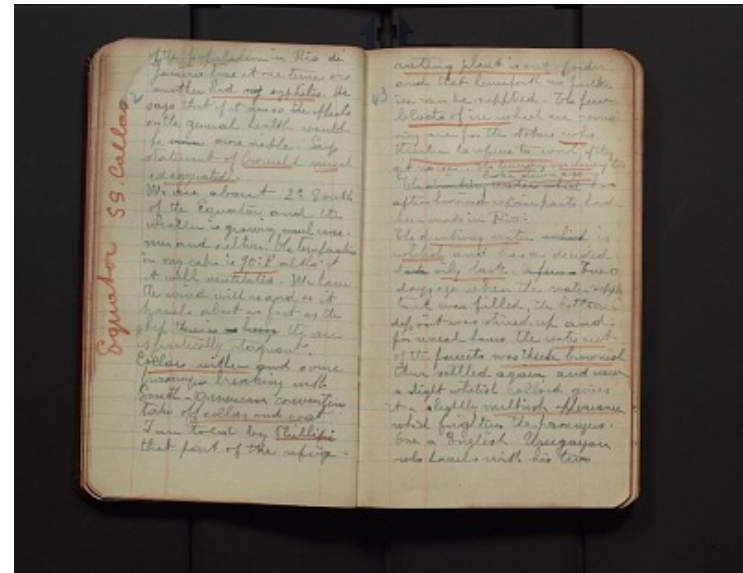 Equator SS. Callao
2
of the population in Rio de
Janeiro have at one time or
another had syphilis. He
says that if it was so the effects
on the general health would
be more visible. Says
statement of
exaggerated.
We are about 2° South
of the Equator and the
weather is growing much war-
mer and sultrier. The temperature
in my cabin is 90° F altho'
it well ventilated. We have
the wind with us and as it
travels about as fast as the
ship the air
is practically stagnant.
Collars wilter and some
passengers breaking with
South-American convention
take off collar and coat
I am told by Phillipi
that part of the refrige-
43
rating plant is out of order
and that henceforth no further
ice can be supplied. The few
blocks of ice which are remai
ning are for the stokers who
threaten to refuse to work if they
get no ice.
has
often burned out parts had
been made in Rio.
The drinking water is
and has a decided
taste. Two
days ago when the water supply
tank was filled, the bottom
deposit was stirred up and
for several hours the water out
of the faucets was thick brown
settled again and now
a slight whitish colloid gives
it a slightly milkish appearance
which frightens the passengers.
One a English Uruguayan
who travels with his two